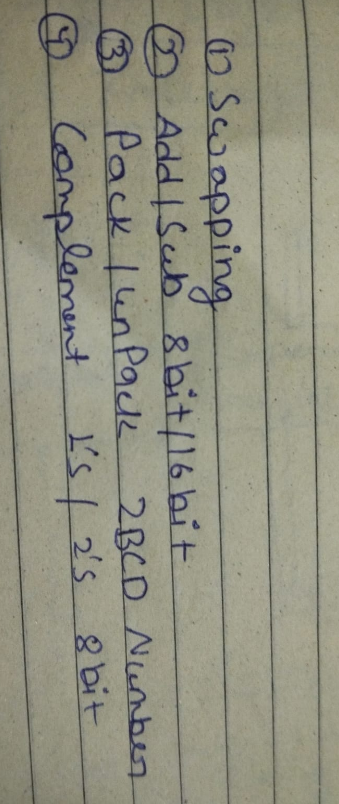 ① Swapping
② Add/Sub 8bit/16bit
③ Pack/UnPack 2BCD Number
④ Complement 1's/2's 8bit